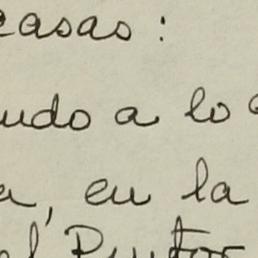 casas:
udo a lo
a, en la
el Pintor